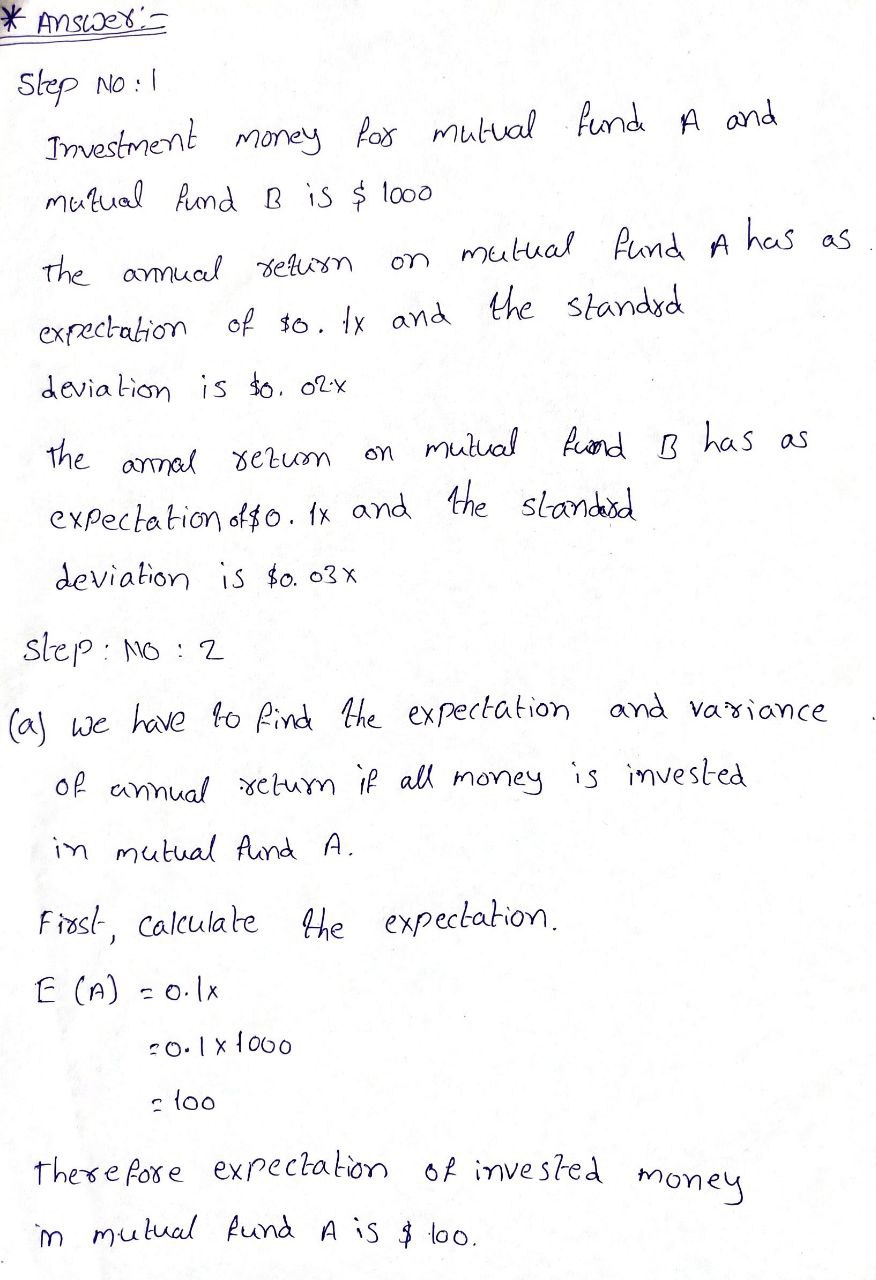 * Answer:-
Step No: 1
Investment money for mutual fund A and
mutual fund B is $ 1000
The annual return on mutual fund A has as
expectation of $0.1x and the standrd
deviation is $0.02x
The annal return on mutual fund B has as
expectation of $0.1x and the standard
deviation is $0.03x
Step: No : 2
(a) we have to find the expectation and variance
of annual return if all money is invested
in mutual fund A.
First, calculate the expectation.
E (A) = 0.1x
= 0.1 x 1000
= 100
Therefore expectation of invested money
in mutual fund A is $ 100.